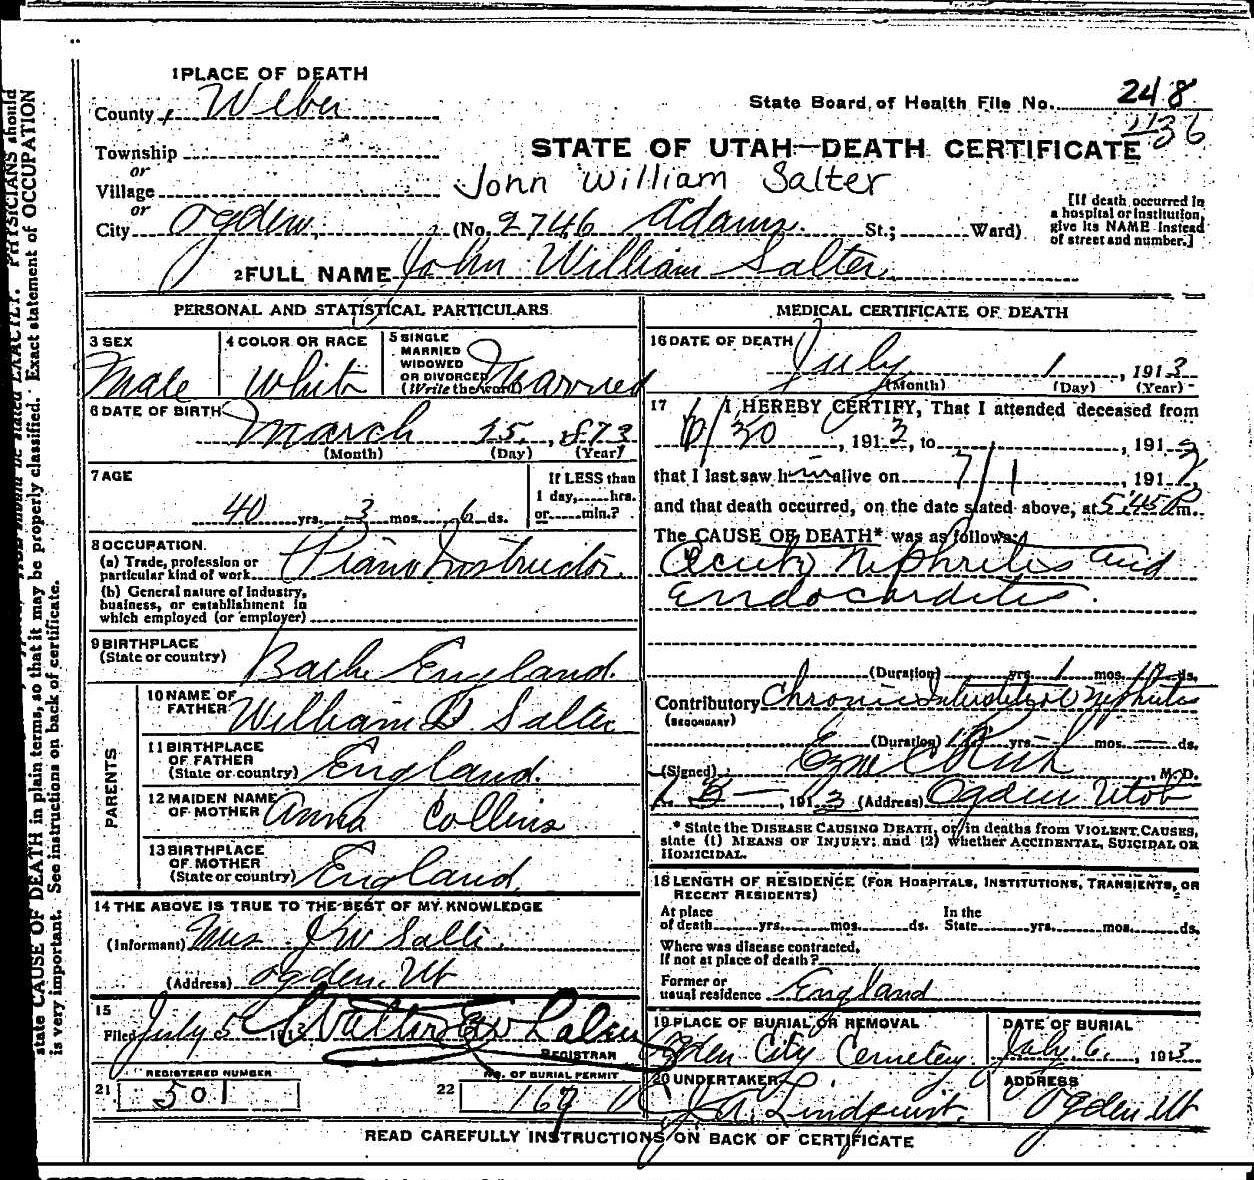 1 PLACE OF DEATH
County Weber
State Board of Health File No. 248
1136
Township
or
Village
or
STATE OF UTAH—DEATH CERTIFICATE
John William Salter
City Ogden, (No. 2746 Adams St.; Ward)
[If death occurred in a hospital or institution, give its NAME instead of street and number.]
2 FULL NAME John William Salter
PERSONAL AND STATISTICAL PARTICULARS
3 SEX
Male
4 COLOR OR RACE
White
5 SINGLE
MARRIED
WIDOWED
OR DIVORCED
(Write the word)
Married
6 DATE OF BIRTH
March 15, 1873
(Month) (Day) (Year)
7 AGE
40 yrs. 3 mos. 6 ds.
If LESS than
1 day, hrs.
or min.?
8 OCCUPATION
(a) Trade, profession or
particular kind of work Piano Instructor.
(b) General nature of industry,
business, or establishment in
which employed (or employer)
9 BIRTHPLACE
(State or country)
Bath England.
PARENTS
10 NAME OF
FATHER William D Salter
11 BIRTHPLACE
OF FATHER
(State or country) England.
12 MAIDEN NAME
OF MOTHER Anna Collins
13 BIRTHPLACE
OF MOTHER
(State or country) England.
14 THE ABOVE IS TRUE TO THE BEST OF MY KNOWLEDGE
(Informant) Mrs J W Salte
(Address) Ogden. Ut
15
Filed July 5 1913
REGISTRAR
REGISTERED NUMBER
21 501
NO. OF BURIAL PERMIT
22 167
MEDICAL CERTIFICATE OF DEATH
16 DATE OF DEATH
July 1, 1913
(Month) (Day) (Year)
17 I HEREBY CERTIFY, That I attended deceased from
6/30, 1913, to, 191
that I last saw him alive on 7/1, 191
and that death occurred, on the date stated above, at 5:45 P.m.
The CAUSE OF DEATH* was as follows:
Acute Nephritis and
Endocarditis.
(Duration) yrs. 1 mos. ds.
Contributory Chronic Interstitial Nephritis
(SECONDARY)
(Duration) yrs. mos. ds.
(Signed) Rich M. D.
1913 (Address) Ogden Utah
* State the DISEASE CAUSING DEATH, or, in deaths from VIOLENT CAUSES,
state (1) MEANS OF INJURY; and (2) whether ACCIDENTAL, SUICIDAL OR
HOMICIDAL.
18 LENGTH OF RESIDENCE (FOR HOSPITALS, INSTITUTIONS, TRANSIENTS, OR
RECENT RESIDENTS)
At place
of death yrs. mos. ds.
In the
State yrs. mos. ds.
Where was disease contracted,
If not at place of death?
Former or
usual residence England
19 PLACE OF BURIAL OR REMOVAL
Ogden City Cemetery.
DATE OF BURIAL
July 6, 1913
20 UNDERTAKER
J. A. Lindquist.
ADDRESS
Ogden Ut
READ CAREFULLY INSTRUCTIONS ON BACK OF CERTIFICATE
EXACTLY. PHYSICIANS should
state CAUSE OF DEATH in plain terms, so that it may be properly classified. Exact statement of OCCUPATION
is very important. See instructions on back of certificate.